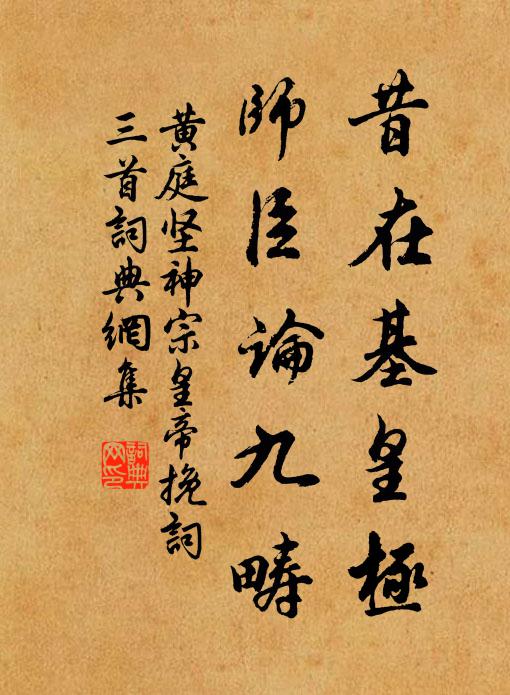 昔在基皇極
師臣論九疇
黄庭坚神宗皇帝挽詞
三首詞典網集
詞典
网印